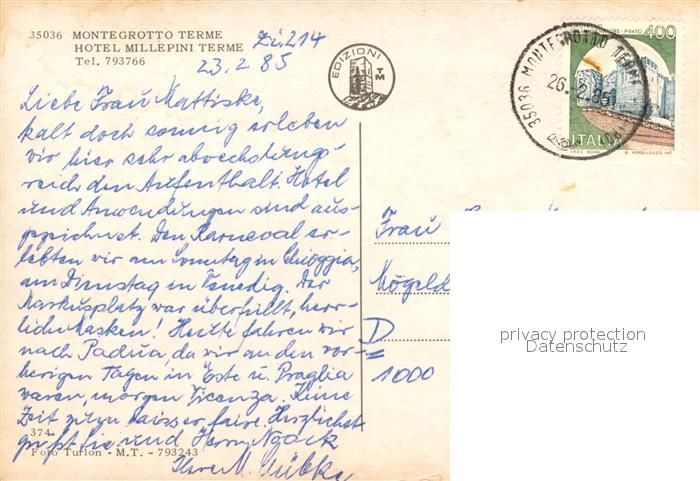 35036 MONTEGROTTO TERME
HOTEL MILLEPINI TERME
Tel. 793766
Zi. 214
23.2.85
Liebe Frau Mattiske,
kalt doch sonnig erleben
wir hier sehr abwechslungs-
reich den Aufenthalt. Hotel
und Anwendungen sind aus-
gezeichnet. Den Karneval er-
lebten wir am Sonntag in Chioggia,
am Dienstag in Venedig. Der
Markusplatz war überfüllt, herr-
liche Masken! Heute fahren wir
nach Padua, da wir an den vor-
herigen Tagen in Este u. Praglia
waren, morgen Vicenza. Keine
Zeit zum laisser faire. Herzlichst
grüßt Sie und Herrn
Ihre M.
374
Foto Turlon - M.T. - 793243
EDIZIONI
TM
35036 MONTEGROTTO TERME
26.2.85
400
ITALIA
Frau
Mögeld
D
1000
privacy protection
Datenschutz